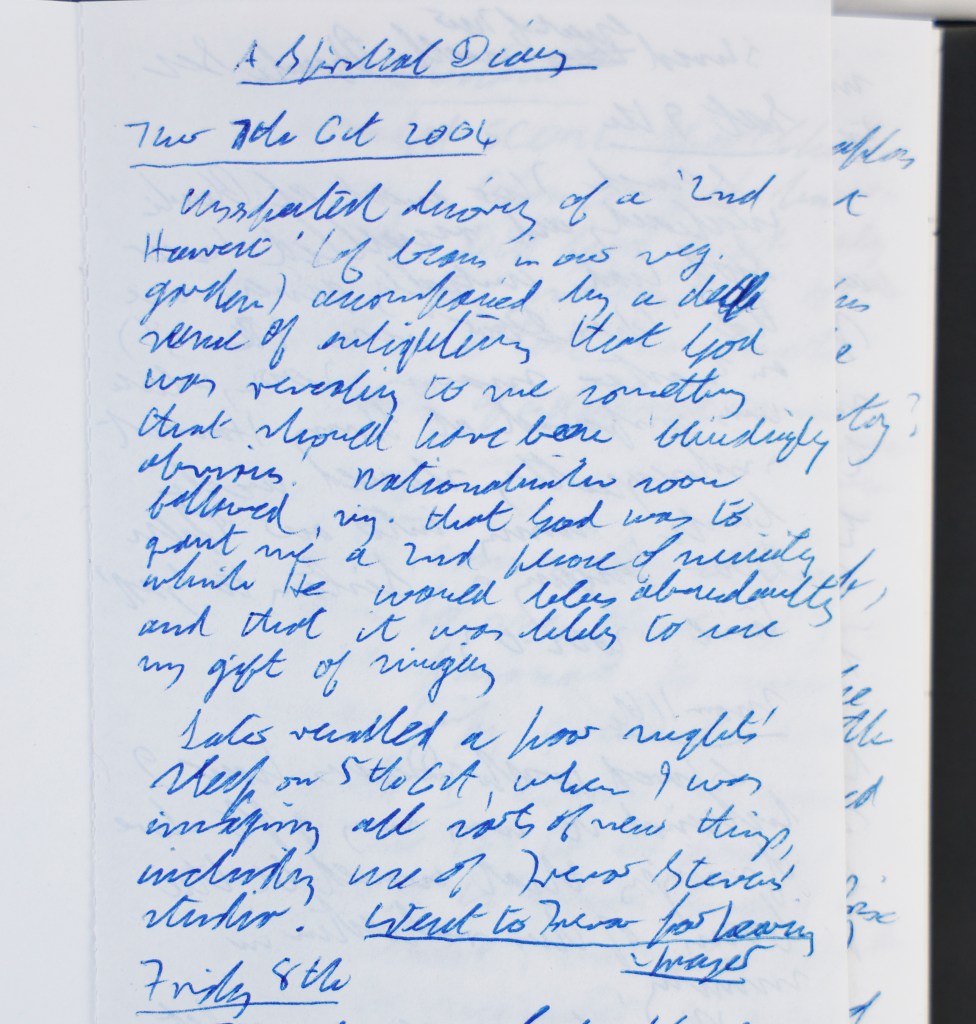 A Spiritual Diary
Thu 7th Oct 2004
Unexpected discovery of a '2nd
Harvest' (of beans in our veg.
garden) accompanied by a deep
sense of enlightening that God
was revealing to me something
that should have been 'blindingly
obvious'. Rationalisation soon
followed, viz. that God was to
grant me a 2nd of ministry
which He would bless abundantly
and that it was likely to use
my gift of singing
Later recalled a poor nights'
sleep on 5th Oct, when I was
imagining all sorts of new things,
including use of Trevor Stevens'
studio. Went to Trevor for
prayer
Friday 8th